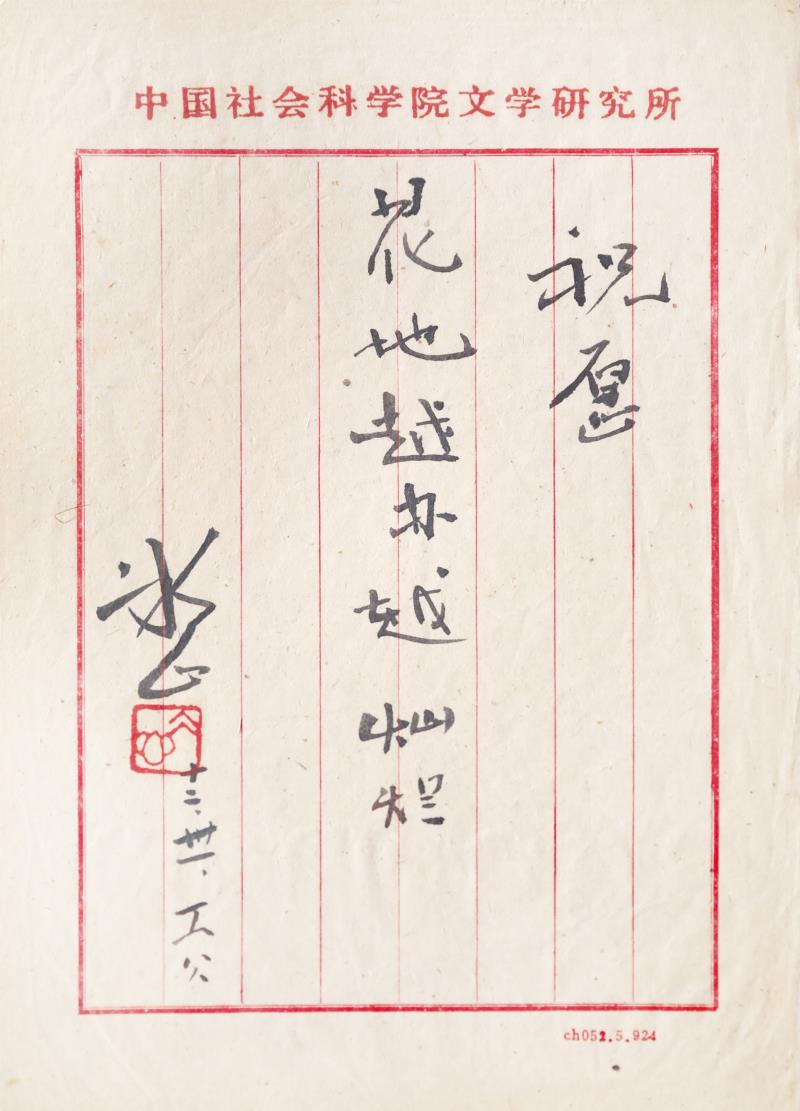 中国社会科学院文学研究所
祝愿
花地越办越灿烂
冰心
十二、卅一、
ch051.5.924